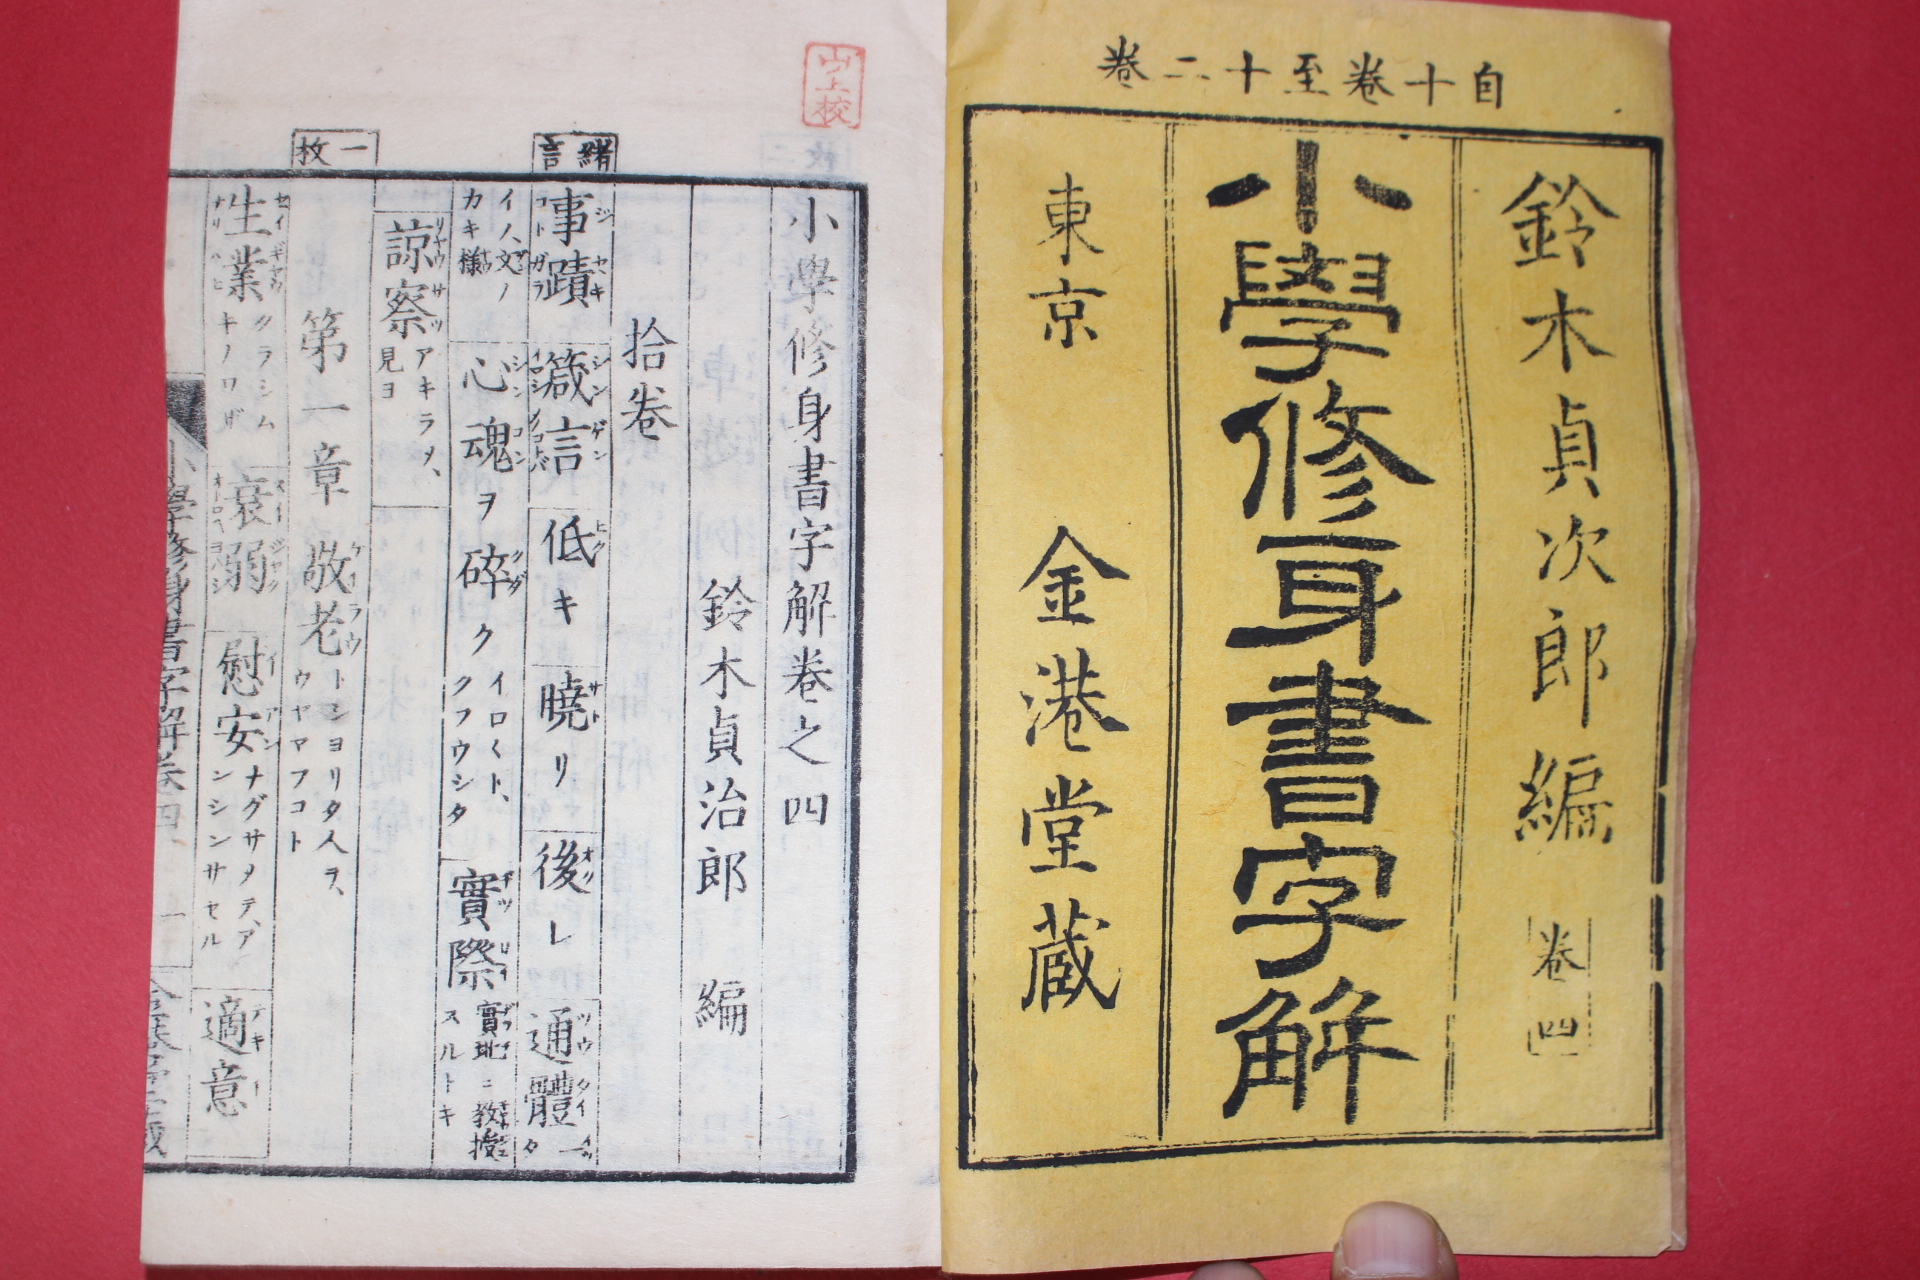 自十卷至十二卷
鈴木貞次郎編 卷四
小學修身書字解
東京 金港堂蔵
山上校
小學修身書字解卷之四
鈴木貞治郎 編
拾卷
緒言
事蹟 ジセキ コトガラ
箴言 シンゲン
低キ ヒク
曉リ サト
後レ オク
通體 ツウタイ
イノ、文ノ
カキ様
心魂ヲ碎ク シンコン クダ イロ〱ト、クフウシタ
實際 ジツサイ 實地ニ教授スルトキ
諒察 リヤウサツ アキラメ、見ヨ
一枚
第一章 敬老 ケーラウ トシヨリタ人ヲ、ウヤマフコト
生業 セイギヤウ ナリハヒ クラシムキノワザ
衰弱 スイジヤク オーロヘヨハシ
慰安 イアン ナグサメテ、アンシンサセル
適意 テキイ
小學修身書字解卷四 一